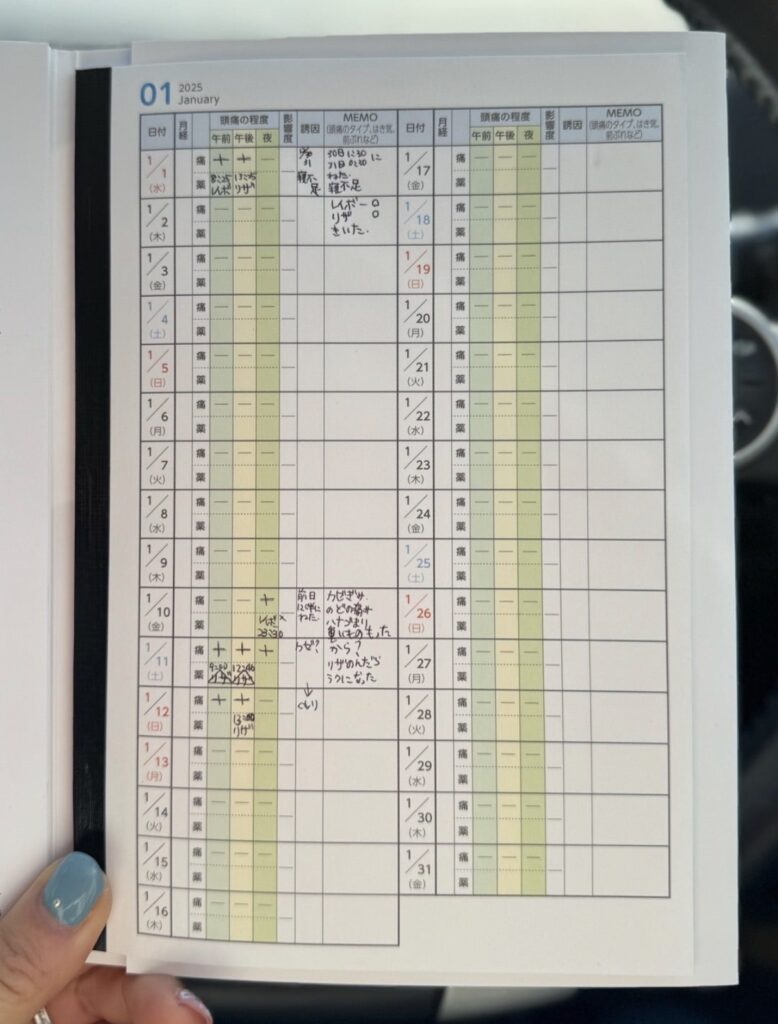 01 2025
January
日付 月経 頭痛の程度 影響度 誘因 MEMO
(頭痛のタイプ、はき気、
前ぶれなど)
午前 午後 夜
1/1 (水) 痛 + + —
薬 8:25 レイボー リザ
寝不足
30日 1:30に
ねた.
寝不足
1/2 (木) 痛 — — —
薬
レイボー○
リザ ○
きいた.
1/3 (金) 痛 — — —
薬
1/4 (土) 痛 — — —
薬
1/5 (日) 痛 — — —
薬
1/6 (月) 痛 — — —
薬
1/7 (火) 痛 — — —
薬
1/8 (水) 痛 — — —
薬
1/9 (木) 痛 — — —
薬
1/10 (金) 痛 — — +
薬 レイボ× 23:30
前日
ねた.
カゼぎみ.
のどの痛み
ハナづまり
重いものもった
1/11 (土) 痛 + + +
薬 リザ リザ
カゼ?
から?
リザのんだら
ラクになった
1/12 (日) 痛 + + —
薬 リザ
↓
くもり
1/13 (月) 痛 — — —
薬
1/14 (火) 痛 — — —
薬
1/15 (水) 痛 — — —
薬
1/16 (木) 痛 — — —
薬
日付 月経 頭痛の程度 影響度 誘因 MEMO
(頭痛のタイプ、はき気、
前ぶれなど)
午前 午後 夜
1/17 (金) 痛 — — —
薬
1/18 (土) 痛 — — —
薬
1/19 (日) 痛 — — —
薬
1/20 (月) 痛 — — —
薬
1/21 (火) 痛 — — —
薬
1/22 (水) 痛 — — —
薬
1/23 (木) 痛 — — —
薬
1/24 (金) 痛 — — —
薬
1/25 (土) 痛 — — —
薬
1/26 (日) 痛 — — —
薬
1/27 (月) 痛 — — —
薬
1/28 (火) 痛 — — —
薬
1/29 (水) 痛 — — —
薬
1/30 (木) 痛 — — —
薬
1/31 (金) 痛 — — —
薬